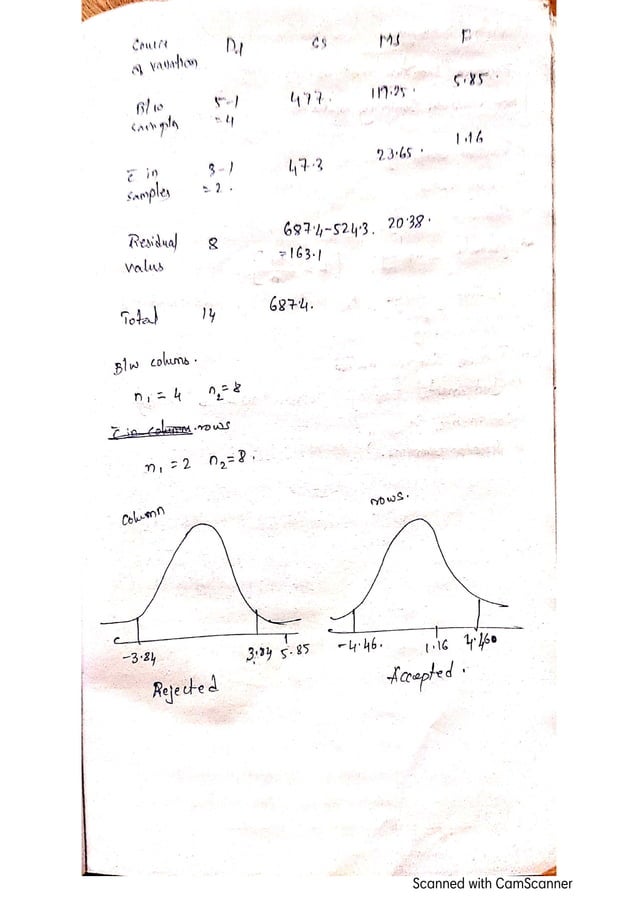 Source D.f SS MS F
of variation
B/w 5-1 477. 119.25. 5.85.
samples =4
c in 3-1 47.3 23.65. 1.16
samples =2.
Residual 8 687.4-524.3. 20.38.
values =163.1
Total 14 687.4.
B/w colums.
n1 = 4 n2=8
c in column rows
n1 = 2 n2=8.
column rows.
-3.84 3.84 5.85 -4.46. 1.16 4.460
Rejected Accepted.
Scanned with CamScanner